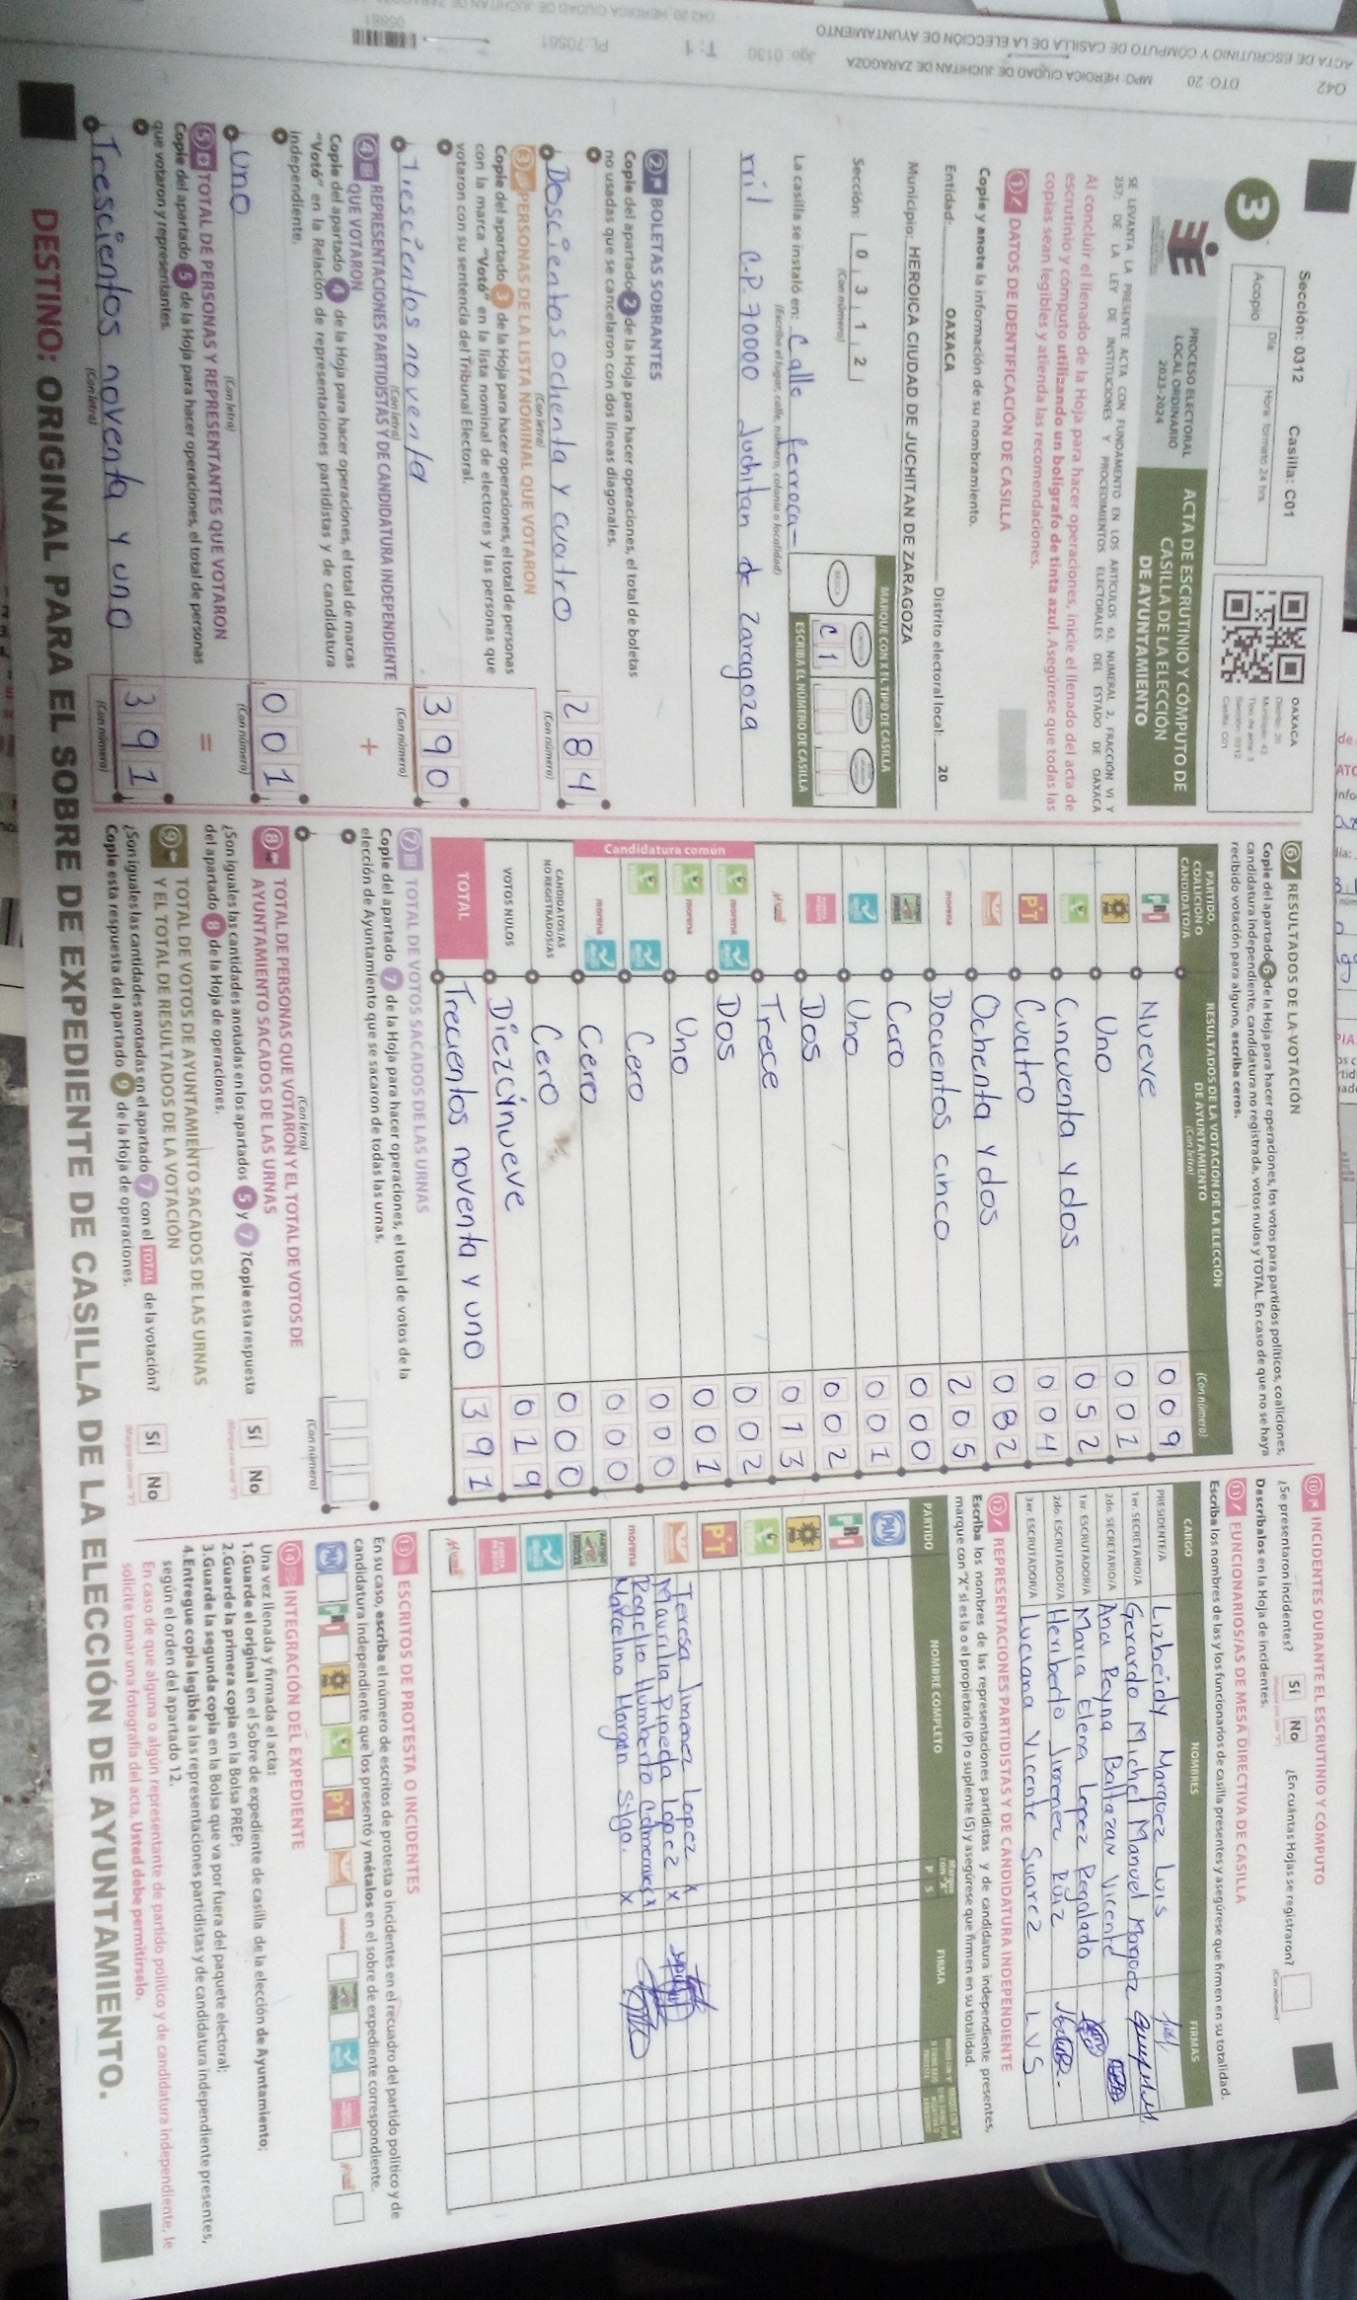 Sección: 0312 Casilla: C01
3
Acopio
Día
Hora formato 24 hrs.
OAXACA
PROCESO ELECTORAL
LOCAL ORDINARIO
2023-2024
ACTA DE ESCRUTINIO Y CÓMPUTO DE
CASILLA DE LA ELECCIÓN
DE AYUNTAMIENTO
SE LEVANTA LA PRESENTE ACTA CON FUNDAMENTO EN LOS ARTÍCULOS 63, NUMERAL 2, FRACCIÓN VI Y
237; DE LA LEY DE INSTITUCIONES Y PROCEDIMIENTOS ELECTORALES DEL ESTADO DE OAXACA
Al concluir el llenado de la Hoja para hacer operaciones, inicie el llenado del acta de
escrutinio y cómputo utilizando un bolígrafo de tinta azul. Asegúrese que todas las
copias sean legibles y atienda las recomendaciones.
1 DATOS DE IDENTIFICACIÓN DE CASILLA
Copie y anote la información de su nombramiento.
Entidad: OAXACA Distrito electoral local: 20
Municipio: HEROICA CIUDAD DE JUCHITAN DE ZARAGOZA
Sección: 0 3 1 2
(Con número)
MARQUE CON X EL TIPO DE CASILLA
ESCRIBA EL NÚMERO DE CASILLA
C 1
La casilla se instaló en: Calle ferroca-
(Escriba el lugar, calle, número, colonia o localidad)
rril C.P. 70000 Juchitan de Zaragoza
2 BOLETAS SOBRANTES
Copie del apartado 2 de la Hoja para hacer operaciones, el total de boletas
no usadas que se cancelaron con dos líneas diagonales.
Doscientos ochenta y cuatro 2 8 4
(Con letra) (Con número)
3 PERSONAS DE LA LISTA NOMINAL QUE VOTARON
Copie del apartado 3 de la Hoja para hacer operaciones, el total de personas
con la marca "Votó" en la lista nominal de electores y las personas que
votaron con su sentencia del Tribunal Electoral.
Trescientos noventa 3 9 0
(Con letra) (Con número)
4 REPRESENTACIONES PARTIDISTAS Y DE CANDIDATURA INDEPENDIENTE
QUE VOTARON
+
Copie del apartado 4 de la Hoja para hacer operaciones, el total de marcas
"Votó" en la Relación de representaciones partidistas y de candidatura
independiente.
Uno 0 0 1
(Con letra) (Con número)
5 TOTAL DE PERSONAS Y REPRESENTANTES QUE VOTARON
=
Copie del apartado 5 de la Hoja para hacer operaciones, el total de personas
que votaron y representantes.
Trescientos noventa y uno 3 9 1
(Con letra) (Con número)
6 RESULTADOS DE LA VOTACIÓN
Copie del apartado 6 de la Hoja para hacer operaciones, los votos para partidos políticos, coaliciones,
candidatura independiente, candidatura no registrada, votos nulos y TOTAL. En caso de que no se haya
recibido votación para alguno, escriba ceros.
PARTIDO,
COALICIÓN O
CANDIDATO/A
RESULTADOS DE LA VOTACIÓN DE LA ELECCIÓN
DE AYUNTAMIENTO
(Con letra) (Con número)
PRI Nueve 0 0 9
Uno 0 0 1
Cincuenta y dos 0 5 2
PT Cuatro 0 0 4
Ochenta y dos 0 8 2
morena Docientos cinco 2 0 5
Cero 0 0 0
Uno 0 0 1
Dos 0 0 2
Trece 0 1 3
Candidatura común
morena Dos 0 0 2
morena Uno 0 0 1
Cero 0 0 0
morena Cero 0 0 0
CANDIDATOS/AS
NO REGISTRADOS/AS Cero 0 0 0
VOTOS NULOS Diezcinueve 0 1 9
TOTAL Trecientos noventa y uno 3 9 1
7 TOTAL DE VOTOS SACADOS DE LAS URNAS
Copie del apartado 7 de la Hoja para hacer operaciones, el total de votos de la
elección de Ayuntamiento que se sacaron de todas las urnas.
(Con letra) (Con número)
8 TOTAL DE PERSONAS QUE VOTARON Y EL TOTAL DE VOTOS DE
AYUNTAMIENTO SACADOS DE LAS URNAS
¿Son iguales las cantidades anotadas en los apartados 5 y 7? Copie esta respuesta
del apartado 8 de la Hoja de operaciones.
Sí No
9 TOTAL DE VOTOS DE AYUNTAMIENTO SACADOS DE LAS URNAS
Y EL TOTAL DE RESULTADOS DE LA VOTACIÓN
¿Son iguales las cantidades anotadas en el apartado 7 con el TOTAL de la votación?
Copie esta respuesta del apartado 9 de la Hoja de operaciones.
Sí No
10 INCIDENTES DURANTE EL ESCRUTINIO Y CÓMPUTO
¿Se presentaron incidentes? Sí No ¿En cuántas Hojas se registraron?
Descríbalos en la Hoja de incidentes.
11 FUNCIONARIOS/AS DE MESA DIRECTIVA DE CASILLA
Escriba los nombres de las y los funcionarios de casilla presentes y asegúrese que firmen en su totalidad.
CARGO NOMBRES FIRMAS
PRESIDENTE/A Lizbeidy Marquez Luis
1er. SECRETARIO/A Gerardo Michel Manuel Marquez
2do. SECRETARIO/A Ana Reyna Baltazar Vicente
1er. ESCRUTADOR/A Maria Elena Lopez Regalado
2do. ESCRUTADOR/A Heriberto Jimenez Ruiz
3er. ESCRUTADOR/A Luciana Vicente Suarez L V S
12 REPRESENTACIONES PARTIDISTAS Y DE CANDIDATURA INDEPENDIENTE
Escriba los nombres de las representaciones partidistas y de candidatura independiente presentes,
marque con "X" si es la o el propietario (P) o suplente (S) y asegúrese que firmen en su totalidad.
PARTIDO NOMBRE COMPLETO P S FIRMA
PAN
PRI
PT
Teresa Jimenez Lopez x
Maurilia Pineda Lopez x
morena Rogelio Humberto x
Marcelino x
13 ESCRITOS DE PROTESTA O INCIDENTES
En su caso, escriba el número de escritos de protesta o incidentes en el recuadro del partido político y de
candidatura independiente que los presentó y métalos en el sobre de expediente correspondiente.
PAN PRI PT
14 INTEGRACIÓN DEL EXPEDIENTE
Una vez llenada y firmada el acta:
1.Guarde el original en el Sobre de expediente de casilla de la elección de Ayuntamiento;
2.Guarde la primera copia en la Bolsa PREP;
3.Guarde la segunda copia en la Bolsa que va por fuera del paquete electoral;
4.Entregue copia legible a las representaciones partidistas y de candidatura independiente presentes,
según el orden del apartado 12.
En caso de que alguna o algún representante de partido político y de candidatura independiente, le
solicite tomar una fotografía del acta, Usted debe permitírselo.
DESTINO: ORIGINAL PARA EL SOBRE DE EXPEDIENTE DE CASILLA DE LA ELECCIÓN DE AYUNTAMIENTO.
ACTA DE ESCRUTINIO Y CÓMPUTO DE CASILLA DE LA ELECCIÓN DE AYUNTAMIENTO
042 DTO 20 MPO HEROICA CIUDAD DE JUCHITAN DE ZARAGOZA